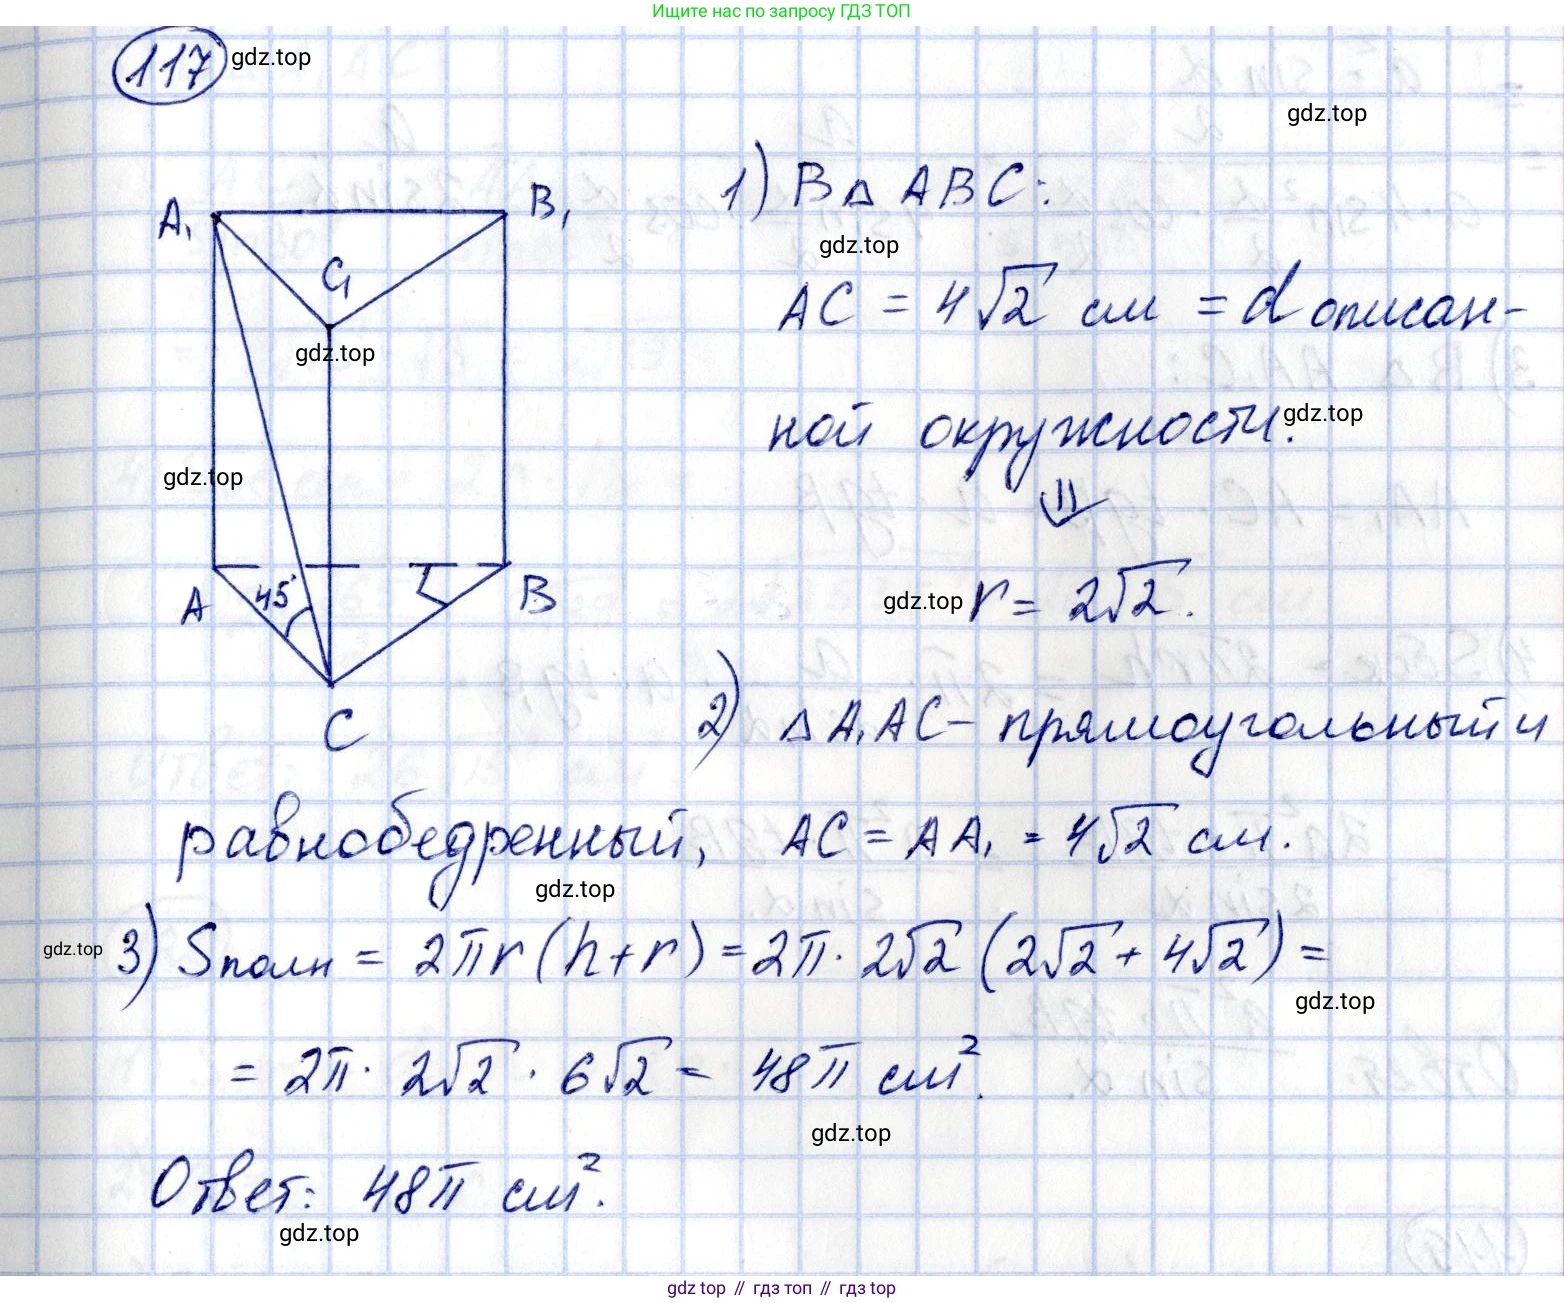 Ищите нас по запросу ГДЗ ТОП
117 gdz.top
gdz.top
1) В △ ABC:
A₁ B₁
gdz.top
C₁
AC = 4√2 см = d описан-
gdz.top
ной окружности. gdz.top
⇓
gdz.top
45° A B
gdz.top r = 2√2.
C
2) △ A₁AC – прямоугольный и
равнобедренный, AC = AA₁ = 4√2 см.
gdz.top
gdz.top 3) Sполн = 2πr(h+r) = 2π · 2√2 (2√2 + 4√2) =
gdz.top
= 2π · 2√2 · 6√2 = 48π см².
gdz.top
Ответ: 48π см².
gdz.top
gdz.top // гдз топ // gdz.top